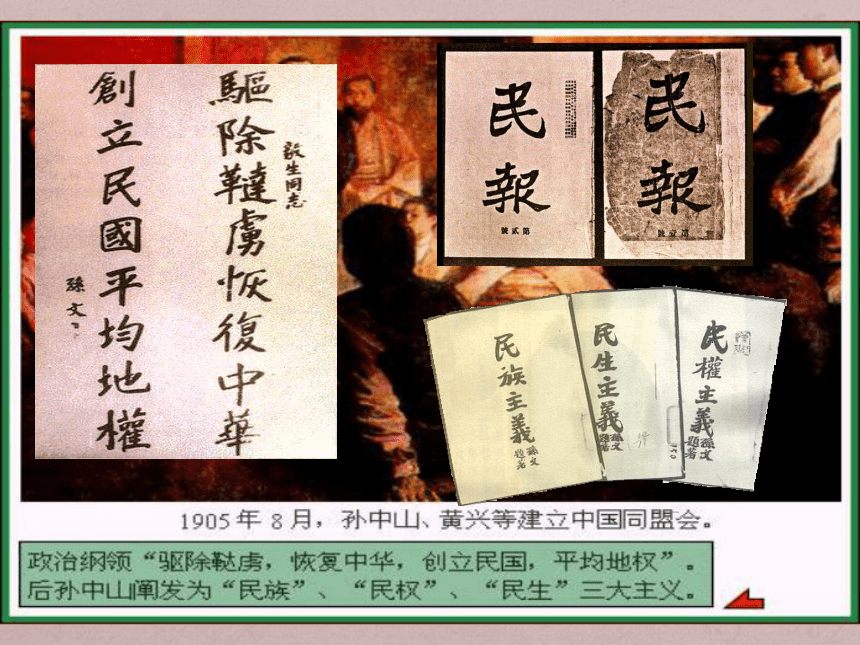 驅除韃虜恢復中華
創立民國平均地權
孫文
民報
第貳號
民報
第壹號
民族主義
孫文
題著
民生主義
孫文
題著
民權主義
孫文
題著
1905年8月，孙中山、黄兴等建立中国同盟会。
政治纲领“驱除鞑虏，恢复中华，创立民国，平均地权”。
后孙中山阐发为“民族”、“民权”、“民生”三大主义。